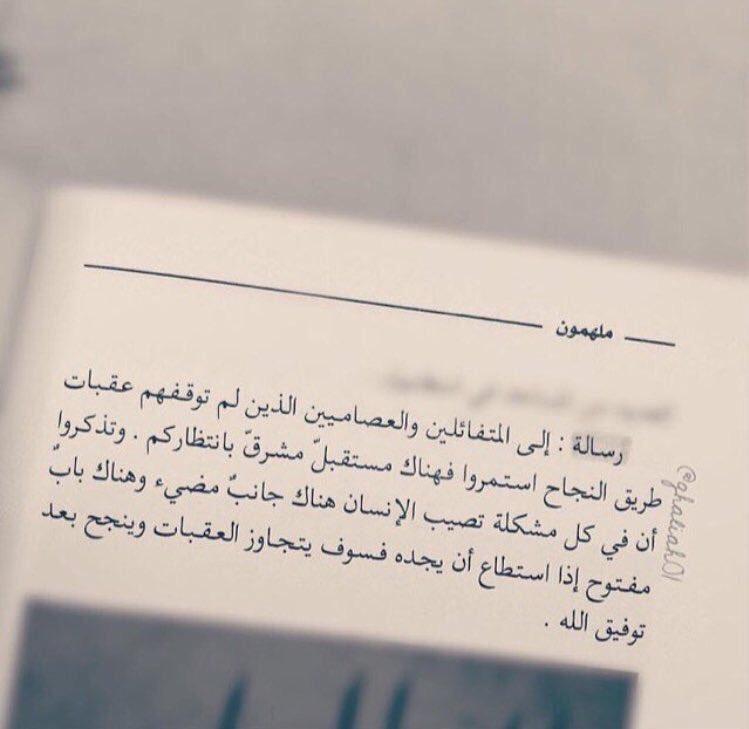 ملهمون
رسالة : إلى المتفائلين والعصاميين الذين لم توقفهم عقبات
طريق النجاح استمروا فهناك مستقبلّ مشرقّ بانتظاركم . وتذكروا
أن في كل مشكلة تصيب الإنسان هناك جانبٌ مضيء وهناك بابٌ
مفتوح إذا استطاع أن يجده فسوف يتجاوز العقبات وينجح بعد
توفيق الله .
@ghaliah01